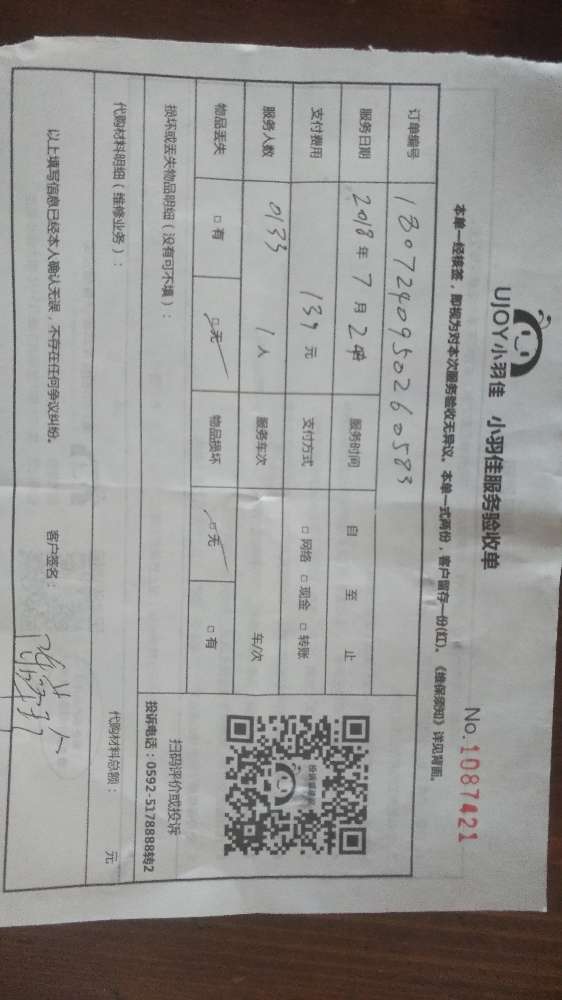 UJOY小羽佳 小羽佳服务验收单
No.1087421
本单一经核签，即视为对本次服务验收无异议。本单一式两份，客户留存一份(红)。《维保须知》详见背面。
订单编号 180724095260583
服务日期 2018年7月2 服务时间 自 至 止
支付费用 139元 支付方式 □网络 □现金 □转账
服务人数 0133 1人 服务车次 车/次
物品丢失 □有 □无 物品损坏 □无 □有
损坏或丢失物品明细（没有可不填）：
投诉建议
扫码评价或投诉
投诉电话：0592-5178888转2
代购材料明细（维修业务）：
代购材料总额： 元
以上填写信息已经本人确认无误，不存在任何争议纠纷。
客户签名：